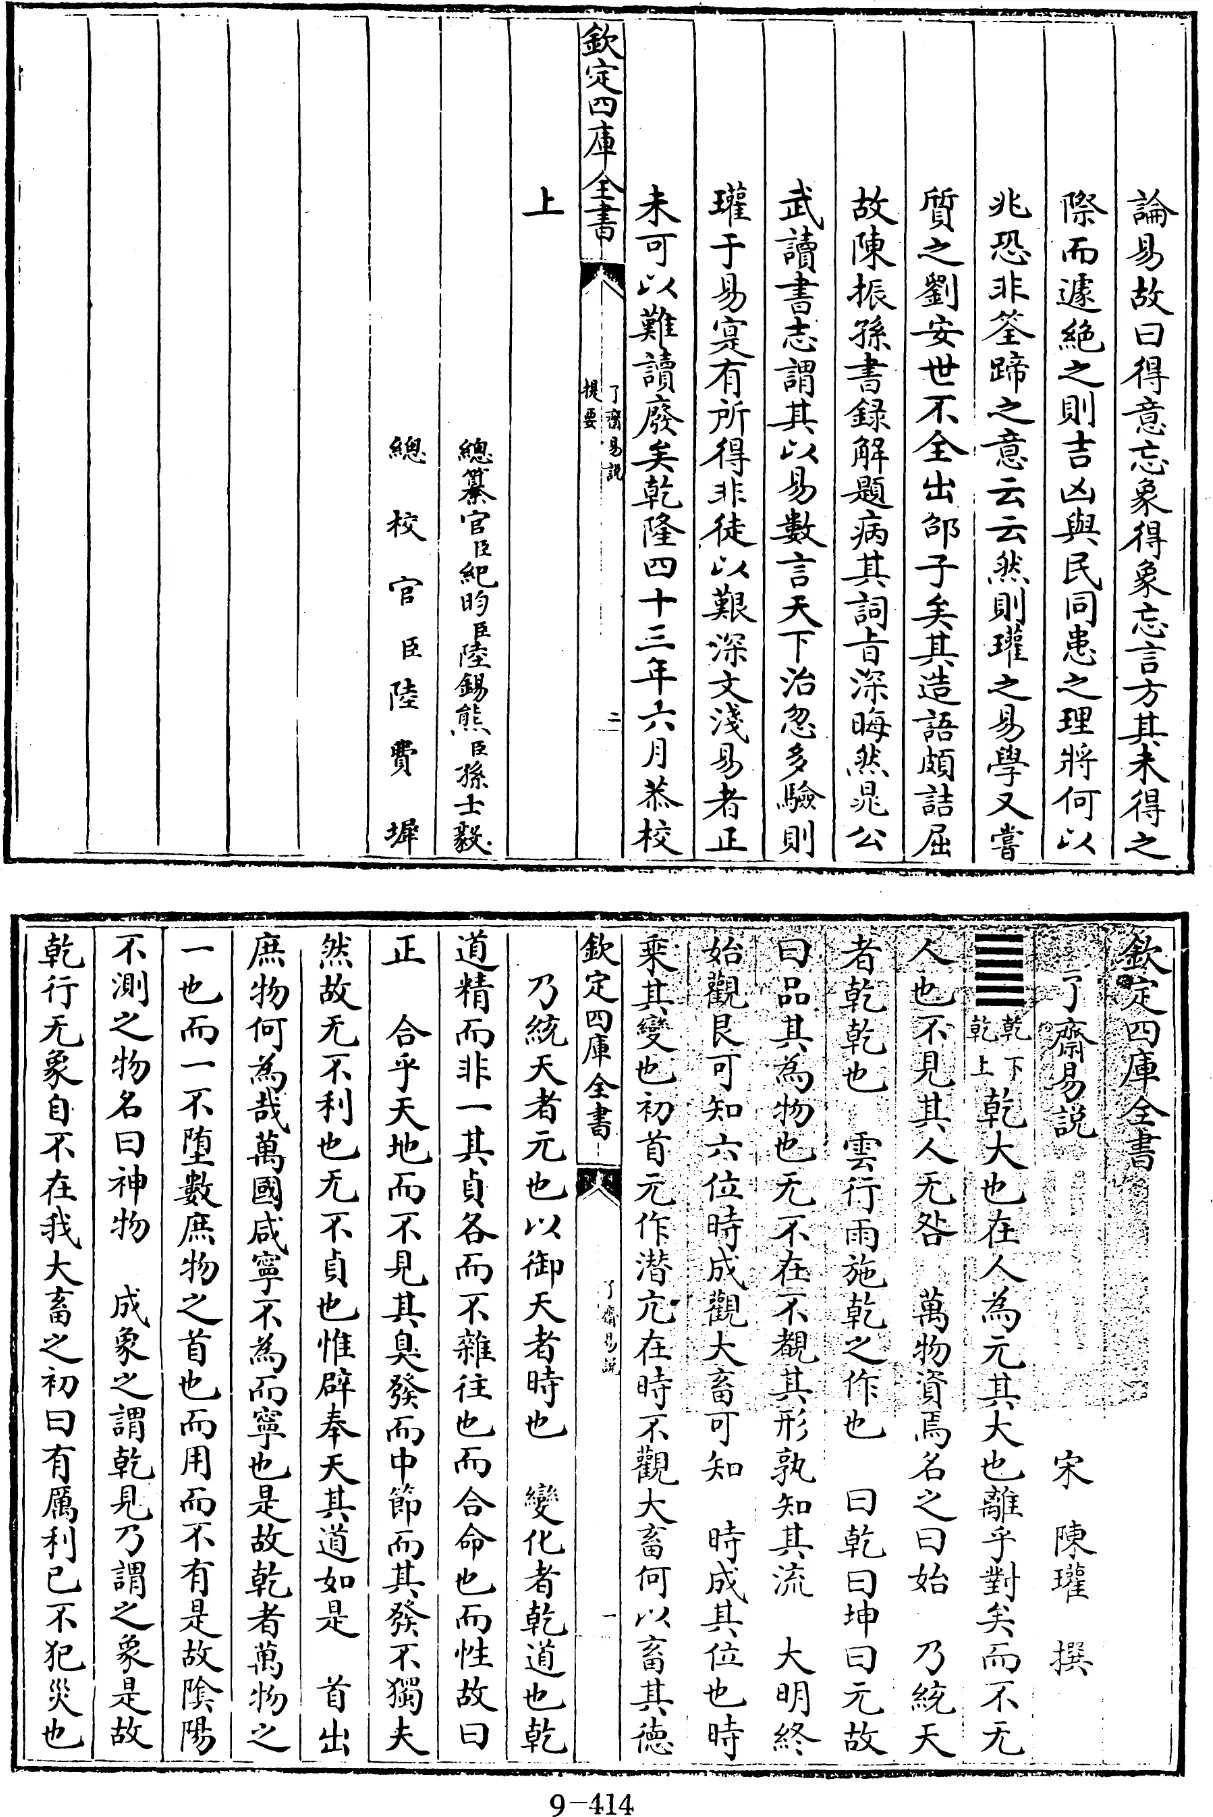 論易故曰得意忘象得象忘言方其未得之
際而遽絶之則吉凶與民同患之理將何以
兆恐非筌蹄之意云云然則瓘之易學又嘗
質之劉安世不全出邵子矣其造語頗詰屈
故陳振孫書録解題病其詞㫖深晦然晁公
武讀書志謂其以易數言天下治忽多驗則
瓘于易寔有所得非徒以艱深文淺易者正
未可以難讀廢矣乾隆四十三年六月恭校
欽定四庫全書
了齋易說
提要
二
上
總纂官臣紀昀臣陸錫熊臣孫士毅
總校官臣陸費墀
欽定四庫全書
了齋易説
宋 陳瓘 撰
䷀乾下乾上乾大也在人為元其大也離乎對矣而不无
人也不見其人无咎 萬物資焉名之曰始 乃統天
者乾乾也 雲行雨施乾之作也 曰乾曰坤曰元故
曰品其為物也无不在不覩其形孰知其流 大明終
始觀艮可知六位時成觀大畜可知 時成其位也時
乘其變也初首元作潜亢在時不觀大畜何以畜其德
欽定四庫全書
了齋易說
一
乃統天者元也以御天者時也 變化者乾道也乾
道精而非一其貞各而不雜往也而合命也而性故曰
正 合乎天地而不見其臭發而中節而其發不獨夫
然故无不利也无不貞也惟辟奉天其道如是 首出
庶物何為哉萬國咸寧不為而寧也是故乾者萬物之
一也而一不堕數庶物之首也而用而不有是故陰陽
不測之物名曰神物 成象之謂乾見乃謂之象是故
乾行无象自不在我大畜之初曰有厲利已不犯災也
9-414